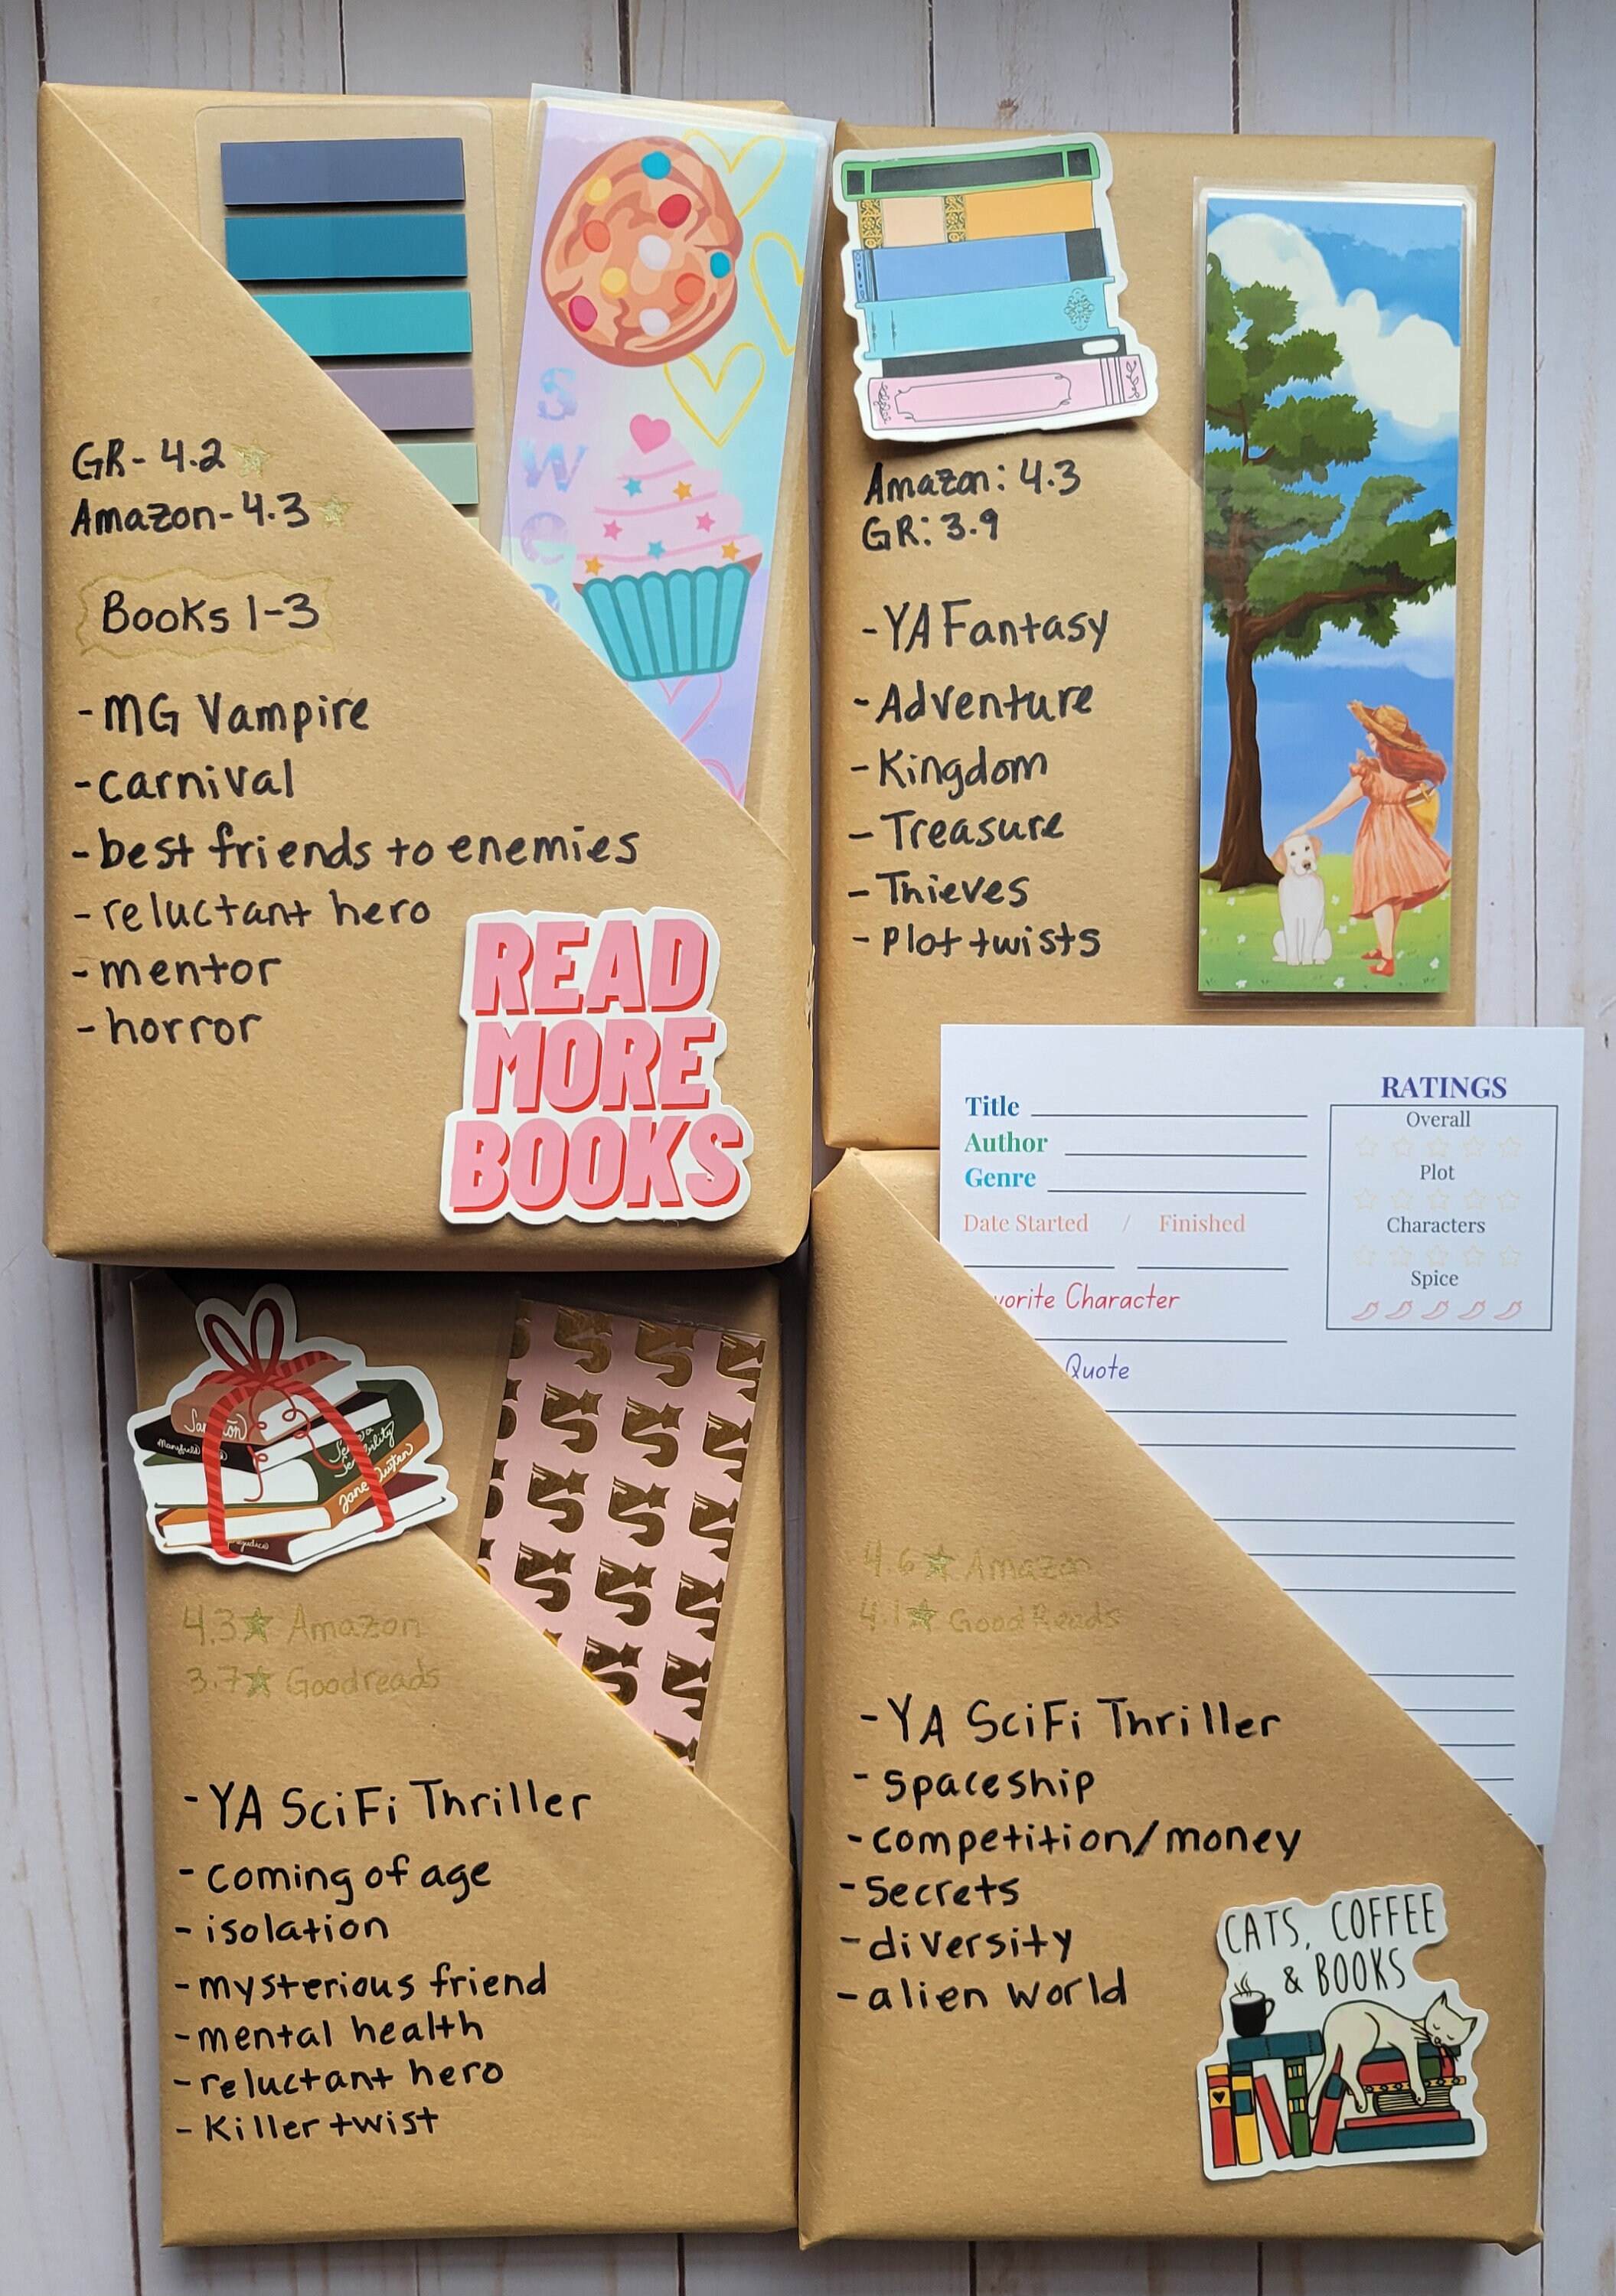 GR- 4.2
Amazon- 4.3
Books 1-3
- MG Vampire
- carnival
- best friends to enemies
- reluctant hero
- mentor
- horror
READ
MORE
BOOKS
s
w
e
Amazon: 4.3
GR: 3.9
- YA Fantasy
- Adventure
- Kingdom
- Treasure
- Thieves
- Plot twists
Title
Author
Genre
Date Started / Finished
vorite Character
Quote
RATINGS
Overall
Plot
Characters
Spice
Mansfield
Sense &
Sensibility
Jane Austen
4.3★ Amazon
3.7★ Goodreads
- YA SciFi Thriller
- coming of age
- isolation
- mysterious friend
- mental health
- reluctant hero
- Killer twist
4.6★ Amazon
4.1★ GoodReads
- YA SciFi Thriller
- spaceship
- competition/money
- Secrets
- diversity
- alien world
CATS, COFFEE
& BOOKS